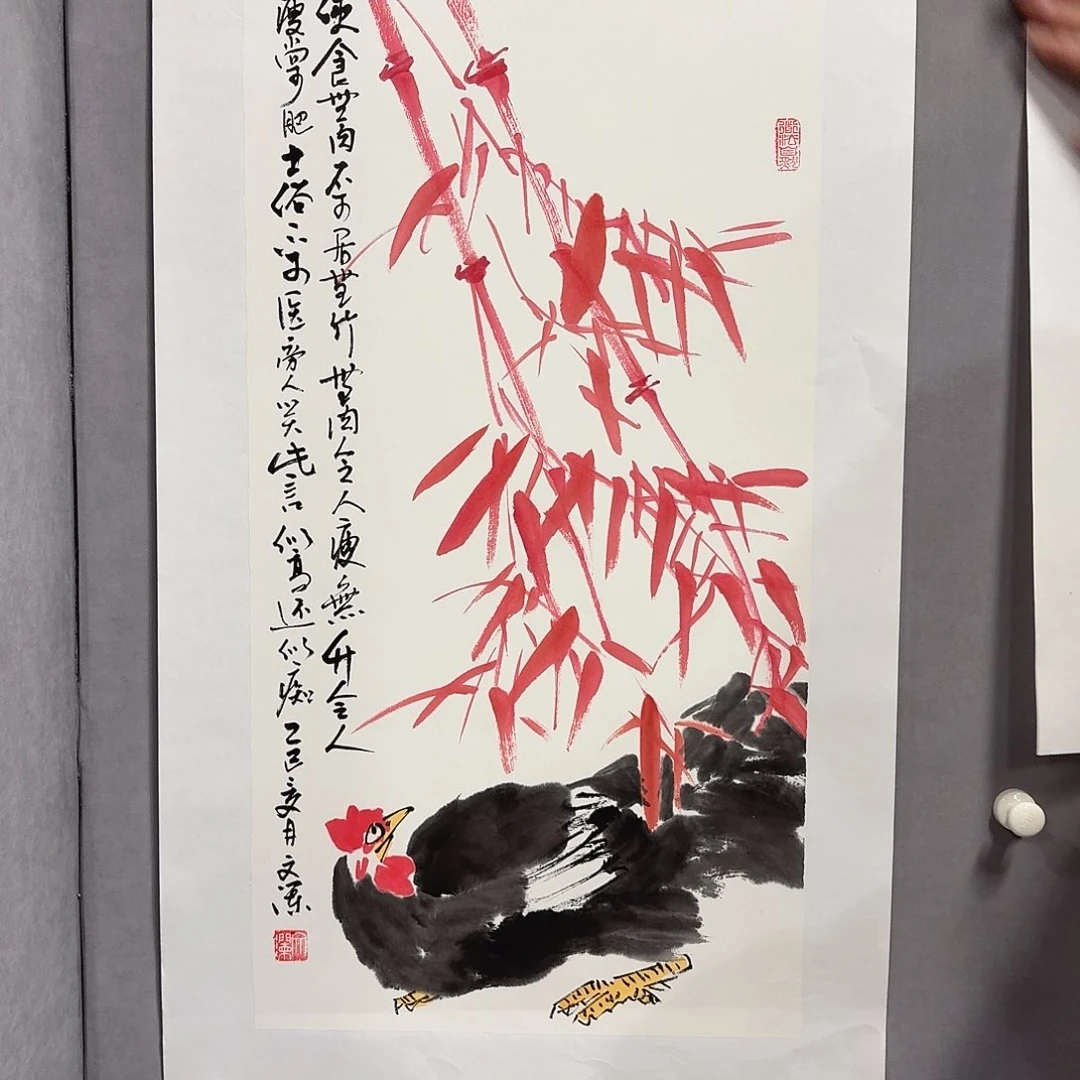 使食無肉不可居無竹無肉令人瘦無竹令人
瘦尚可肥士俗不可医旁人笑此言似高还似痴乙巳亥月文澜
道法自然